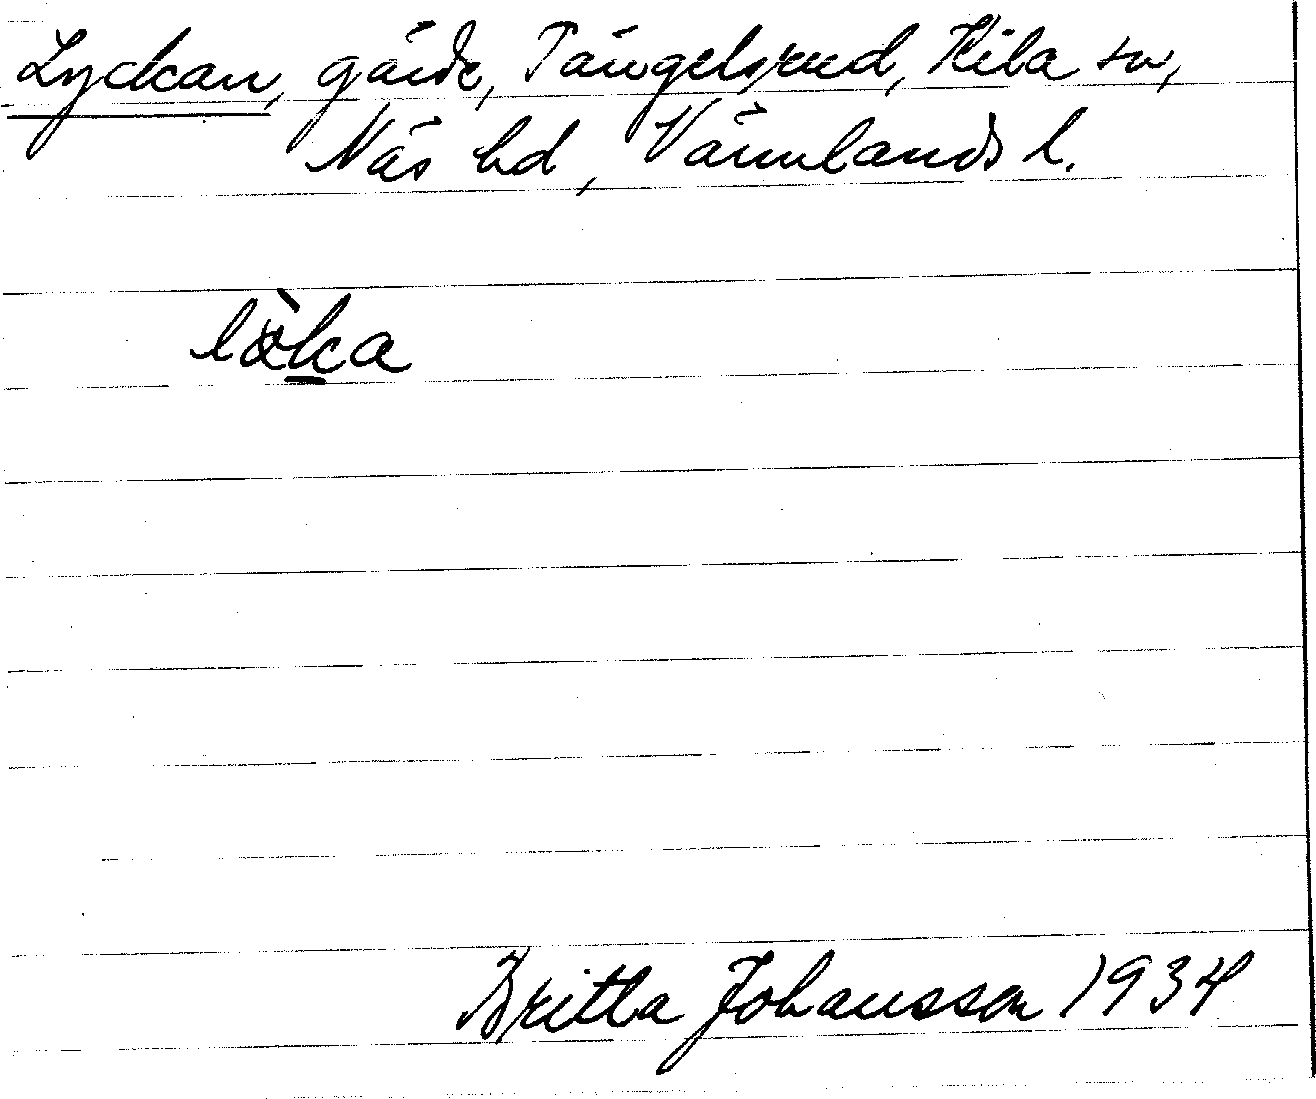 Lyckan, gärde, Tängelsrud, Kila sn,
Näs hd, Värmlands l.
lö̀ka
Britta Johansson 1934